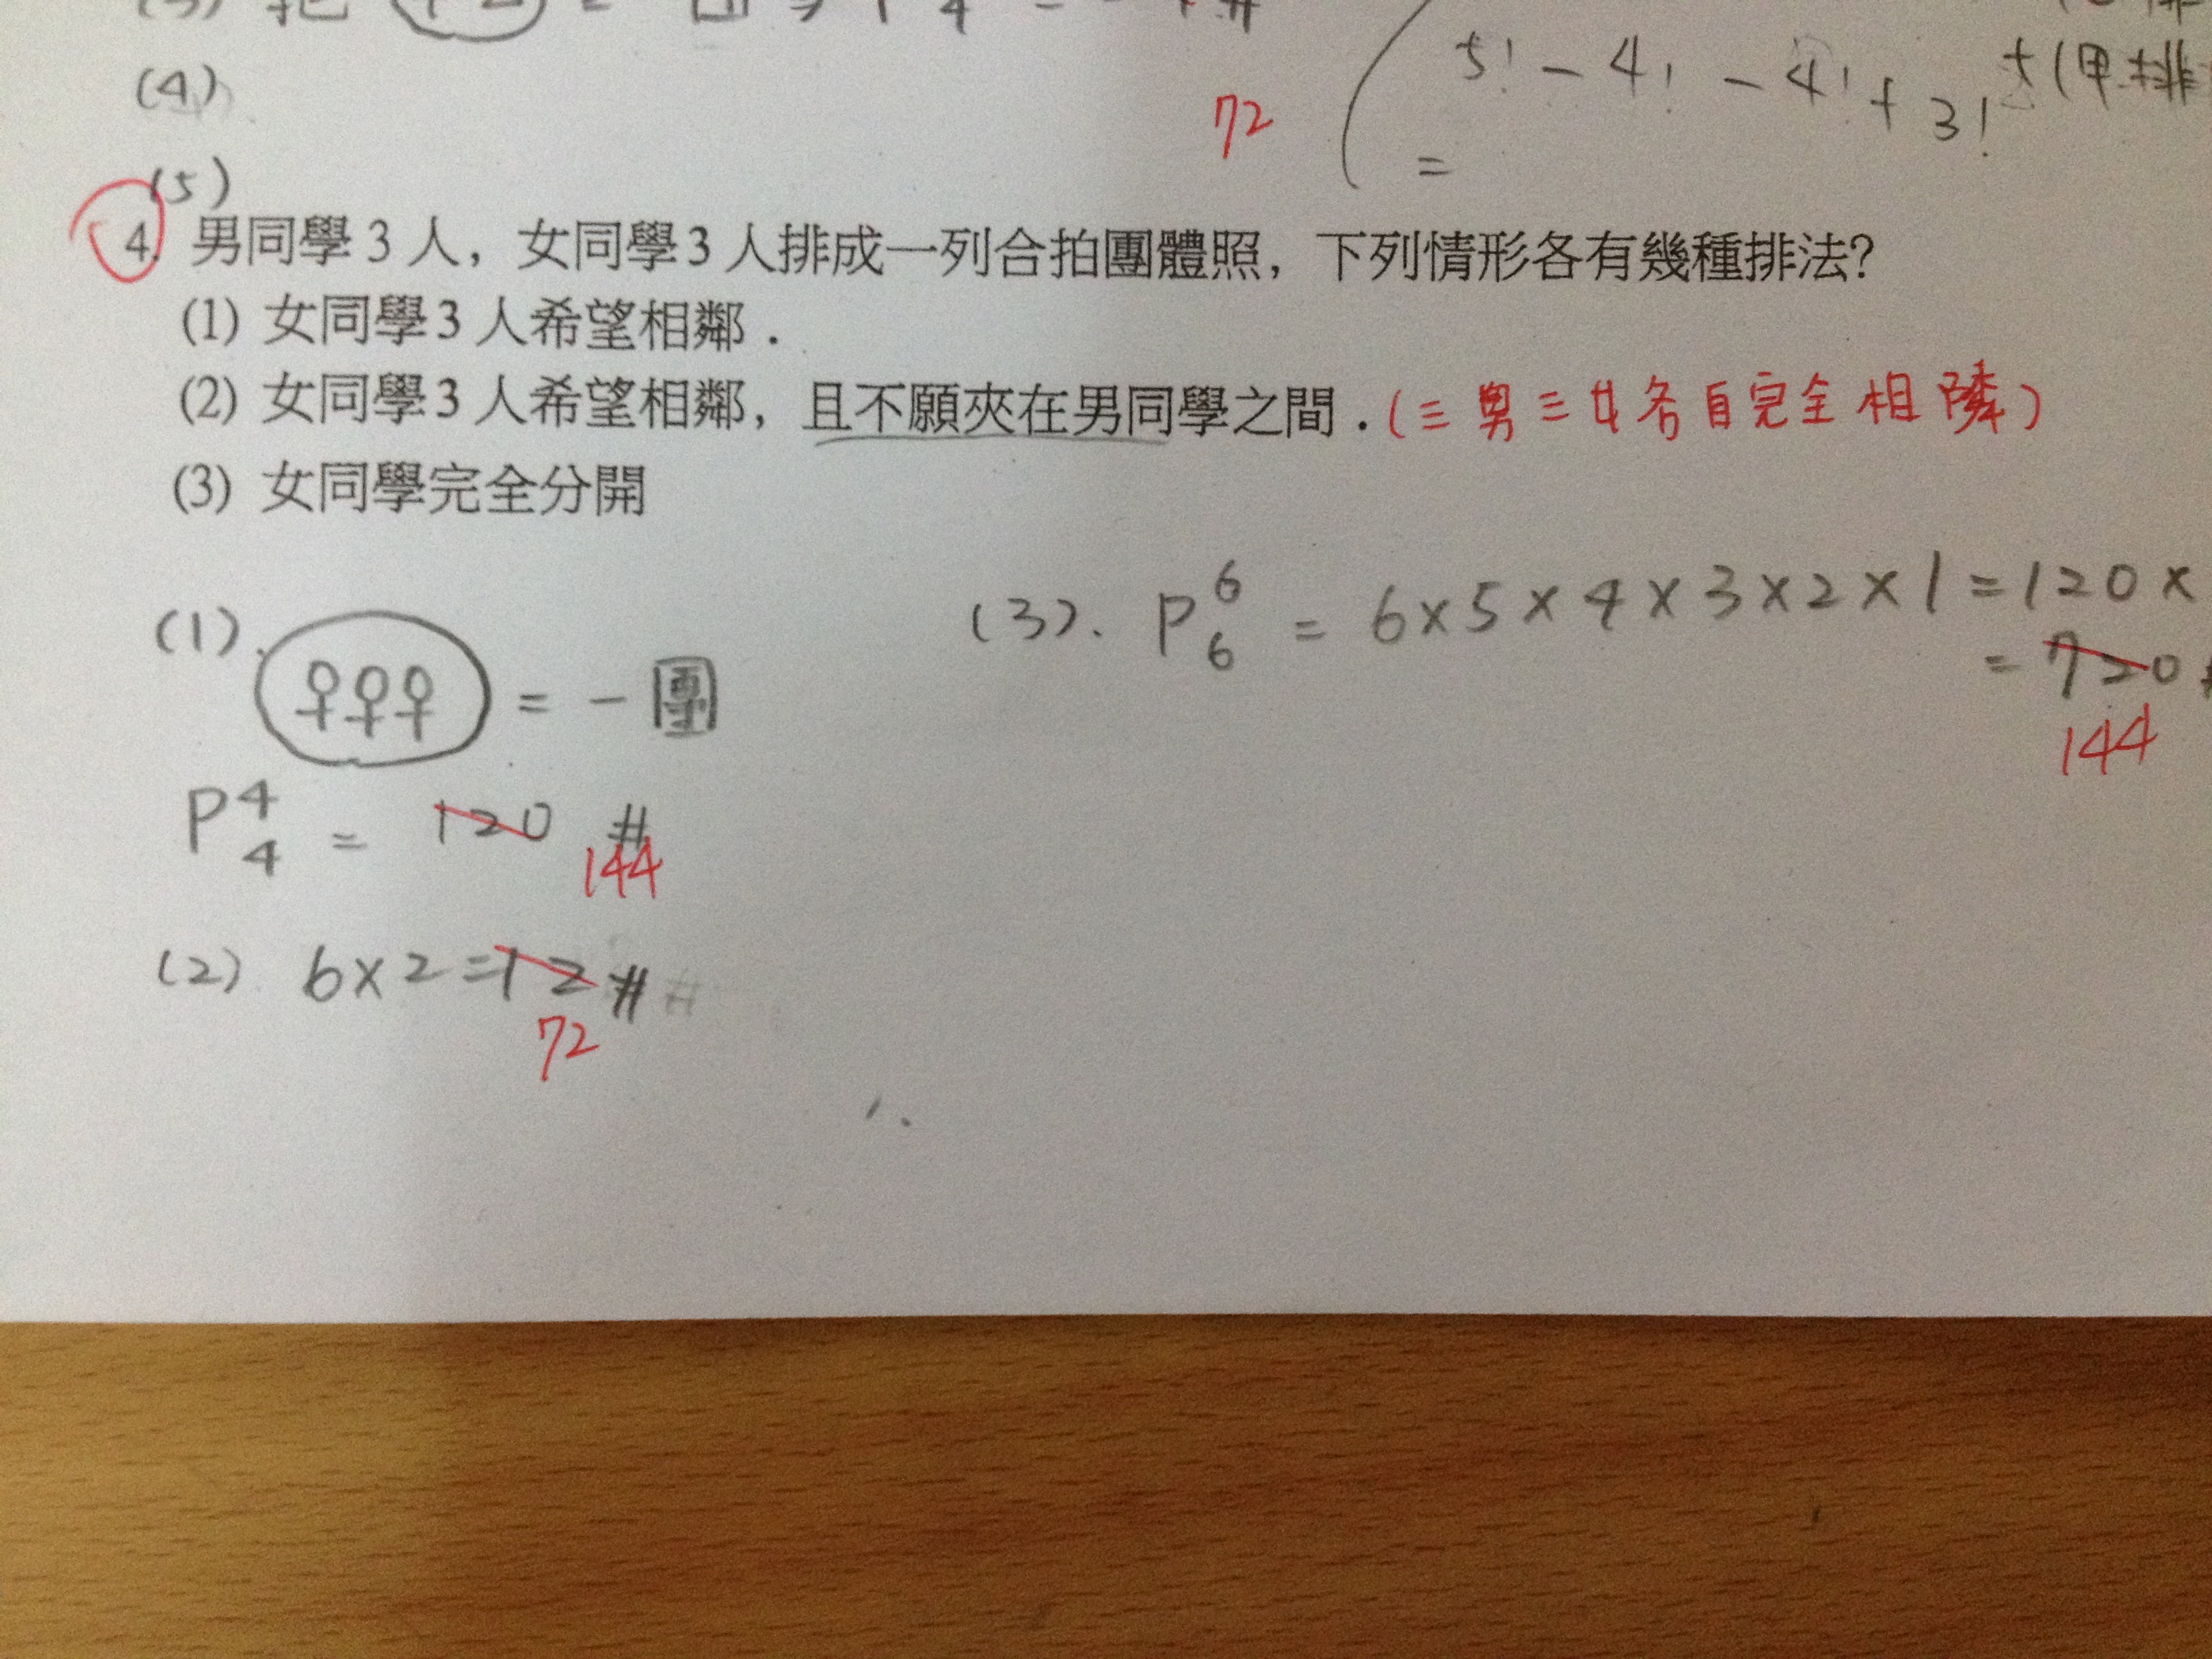 (4)
72
5! - 4! - 4! + 3!
=
(5)
4. 男同學3人，女同學3人排成一列合拍團體照，下列情形各有幾種排法?
(1) 女同學3人希望相鄰．
(2) 女同學3人希望相鄰，且不願夾在男同學之間．(三男三女各自完全相隣)
(3) 女同學完全分開
(1). ♀♀♀ = 一團
P⁴₄ = 120 #
144
(2) 6×2=12#
72
(3). P⁶₆ = 6×5×4×3×2×1=120×
= 720
144